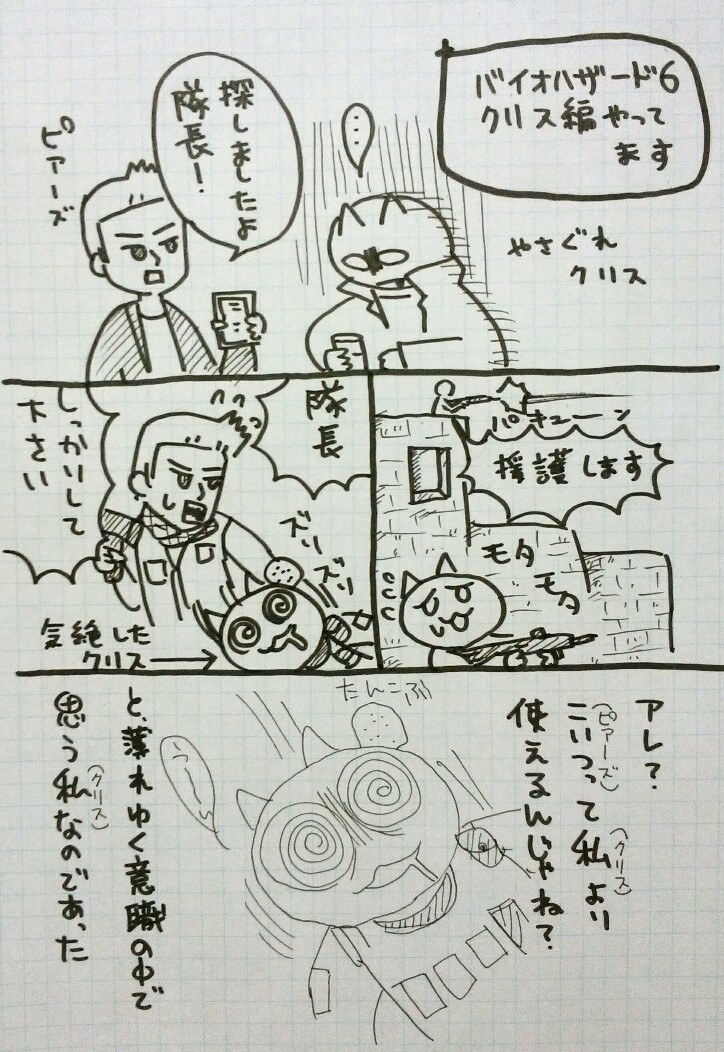 バイオハザード6
クリス編やって
ます
やさぐれ
クリス
……
探しましたよ
隊長!
ピアーズ
パキューーン
援護します
モタ
モタ
隊長
しっかりして
下さい
ズリ
ズリ
気絶した
クリス→
アレ?
こいつって私より
(ピアーズ)
(クリス)
使えるんじゃね?
たんこぶ
う〜ん
と、薄れゆく意職の中で
思う私なのであった
(クリス)